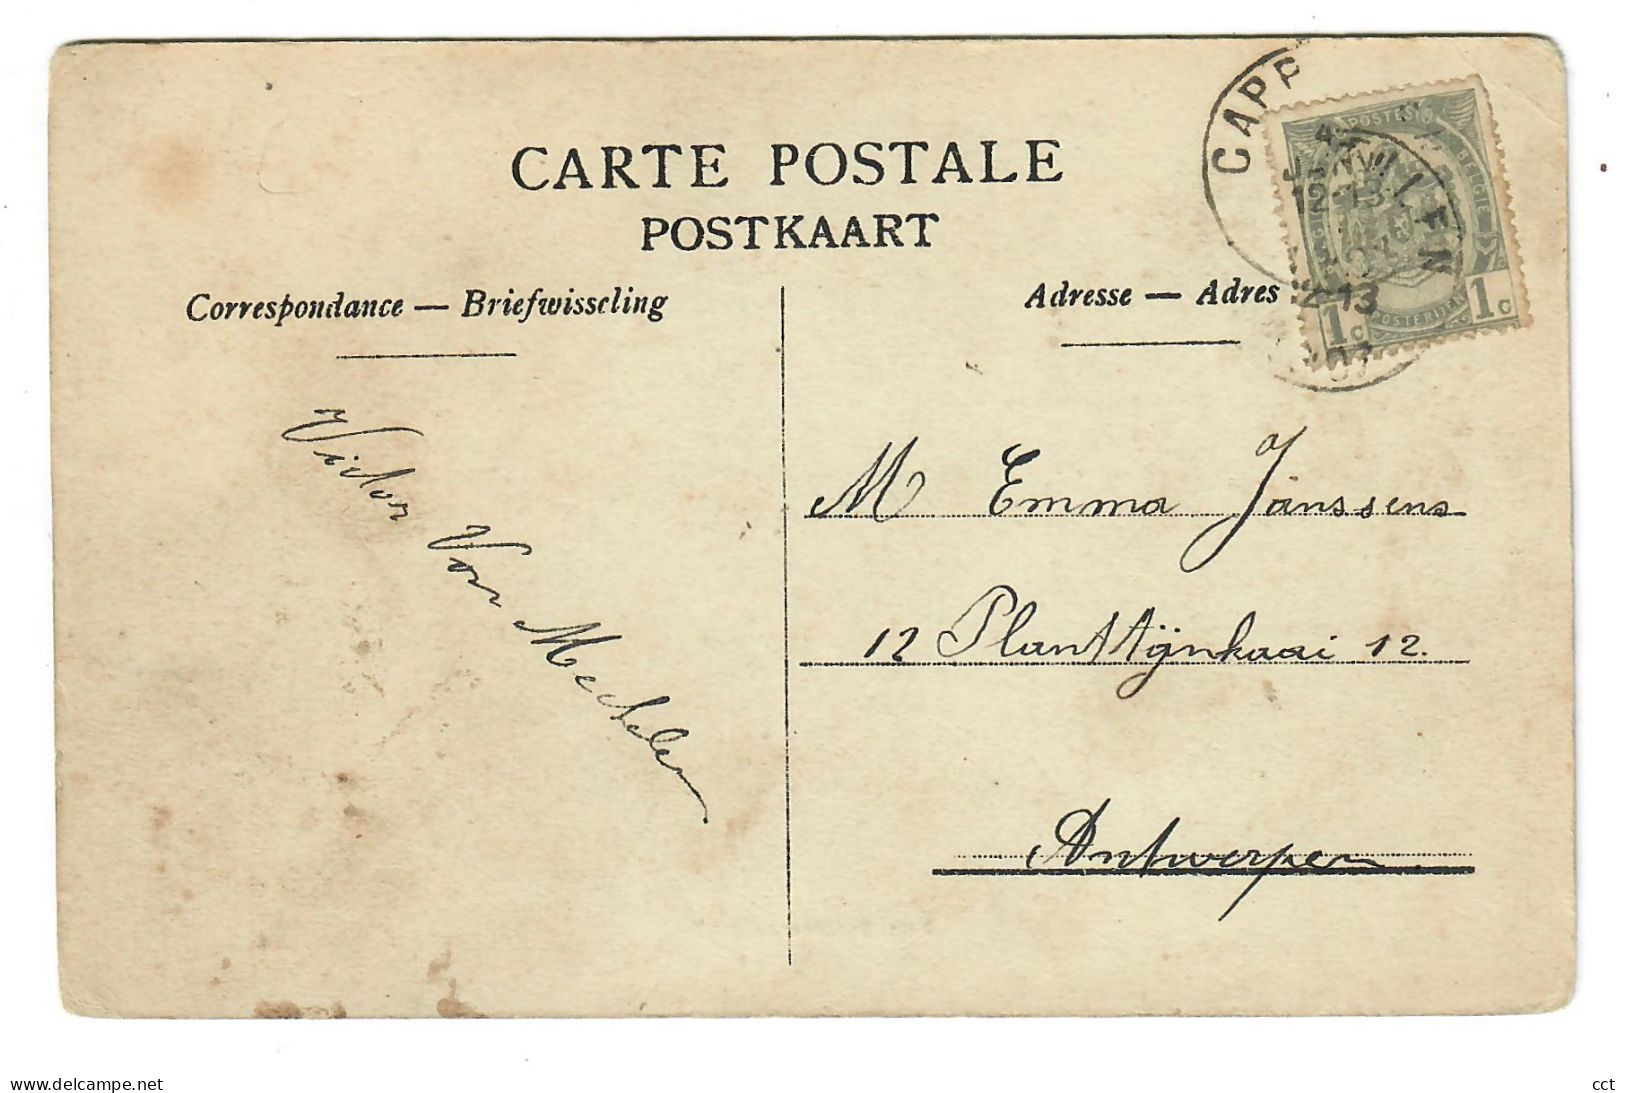 CARTE POSTALE
POSTKAART
Correspondance — Briefwisseling
Adresse — Adres
CAPP
LEN
12-13
07
POSTES
BELGIE
POSTERIJEN
1c 1c
Victor Van Mechelen
M Emma Janssens
12 Planttijnkaai 12.
Antwerpen.
www.delcampe.net
cct